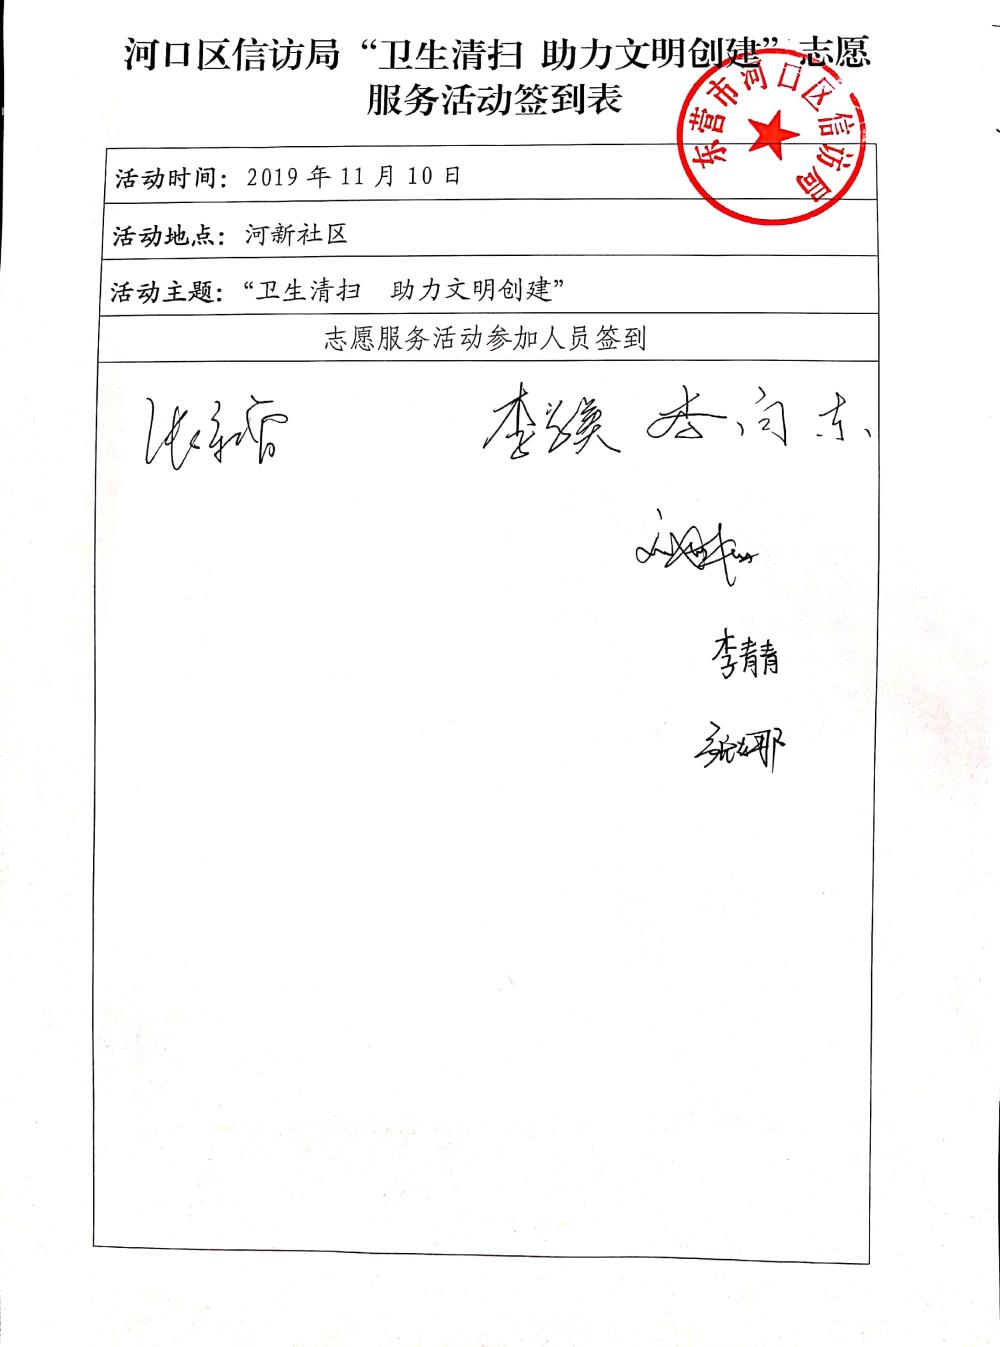 河口区信访局“卫生清扫 助力文明创建”志愿
服务活动签到表
东营市河口区信访局
活动时间：2019 年 11 月 10 日
活动地点：河新社区
活动主题：“卫生清扫 助力文明创建”
志愿服务活动参加人员签到
李向东
李青青
张娜